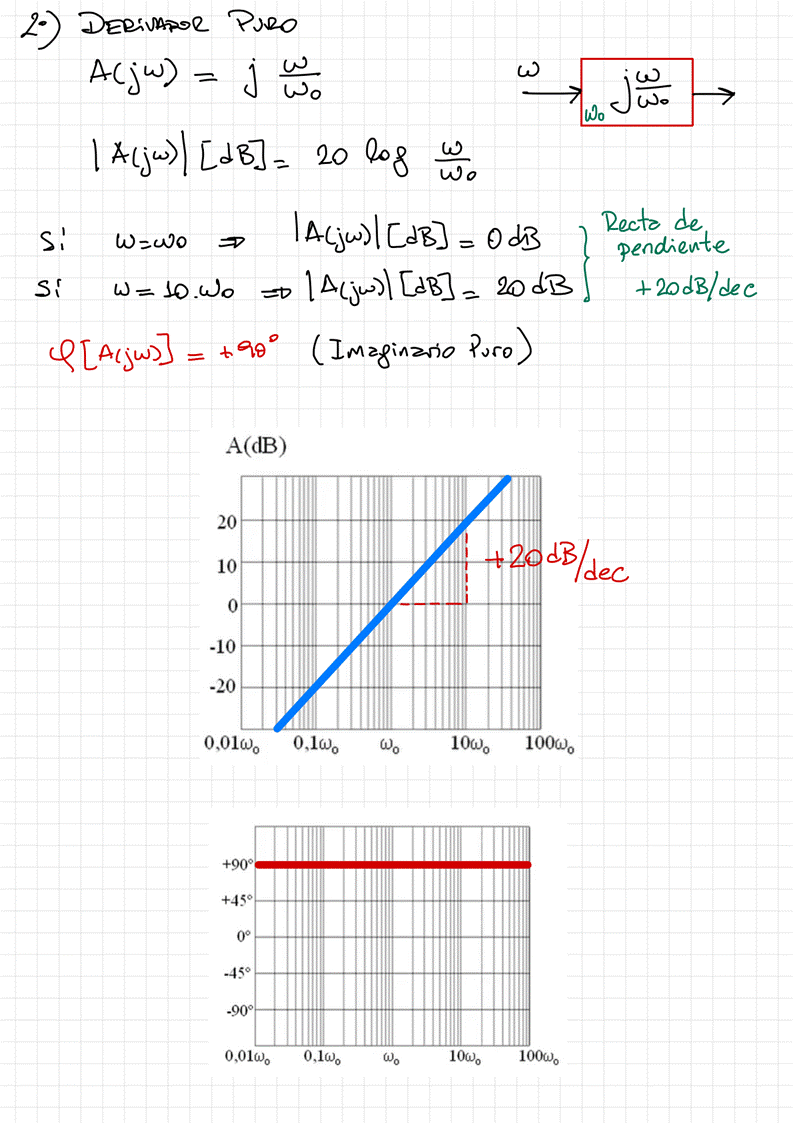 2º) DERIVADOR PURO
A(jω) = j ω/ω₀
ω
jω/ω₀
ω₀
|A(jω)| [dB] = 20 log ω/ω₀
Si ω=ω₀ ⇒ |A(jω)| [dB] = 0 dB
Si ω = 10.ω₀ ⇒ |A(jω)| [dB] = 20 dB
Recta de
pendiente
+20dB/dec
φ[A(jω)] = +90° (Imaginario Puro)
A(dB)
20
10
0
-10
-20
+20dB/dec
0,01ω₀ 0,1ω₀ ω₀ 10ω₀ 100ω₀
+90°
+45°
0°
-45°
-90°
0,01ω₀ 0,1ω₀ ω₀ 10ω₀ 100ω₀